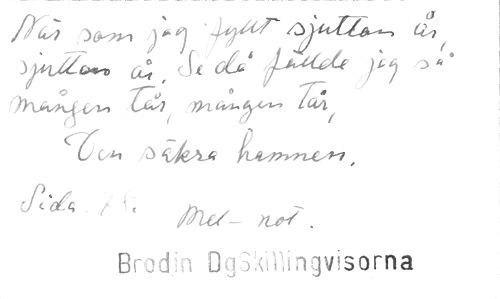 När som jag fyllt sjutton år,
sjutton år, Se då fällde jag så
mången tår, mången tår,
Den säkra hamnen.
Sida
Mel- not.
Brodin DgSkillingvisorna